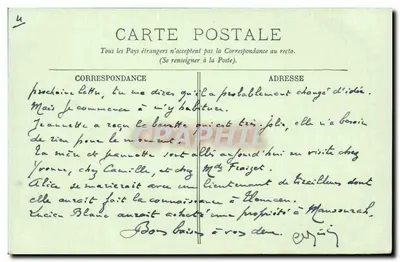 4
CARTE POSTALE
Tous les Pays étrangers n'acceptent pas la Correspondance au recto.
(Se renseigner à la Poste).
CORRESPONDANCE
ADRESSE
prochaine lettre, tu me diras qu'il a probablement changé d'idée.
Mais je commence à m'y habituer.
Jeannette a reçu la bavette qui est très jolie, elle n'a besoin
de rien pour le moment.
La mère et Jeannette sont allé aujourd'hui en visite chez
Yvonne, chez Camille, et chez Mde Fraizet.
Alice se marierait avec un lieutenant de tirailleurs dont
elle aurait fait la connaissance à Tlemcen.
Lucien Blanc aurait acheté une propriété à Mansourah.
Bons baisers à vos deux.
CPAPHIL